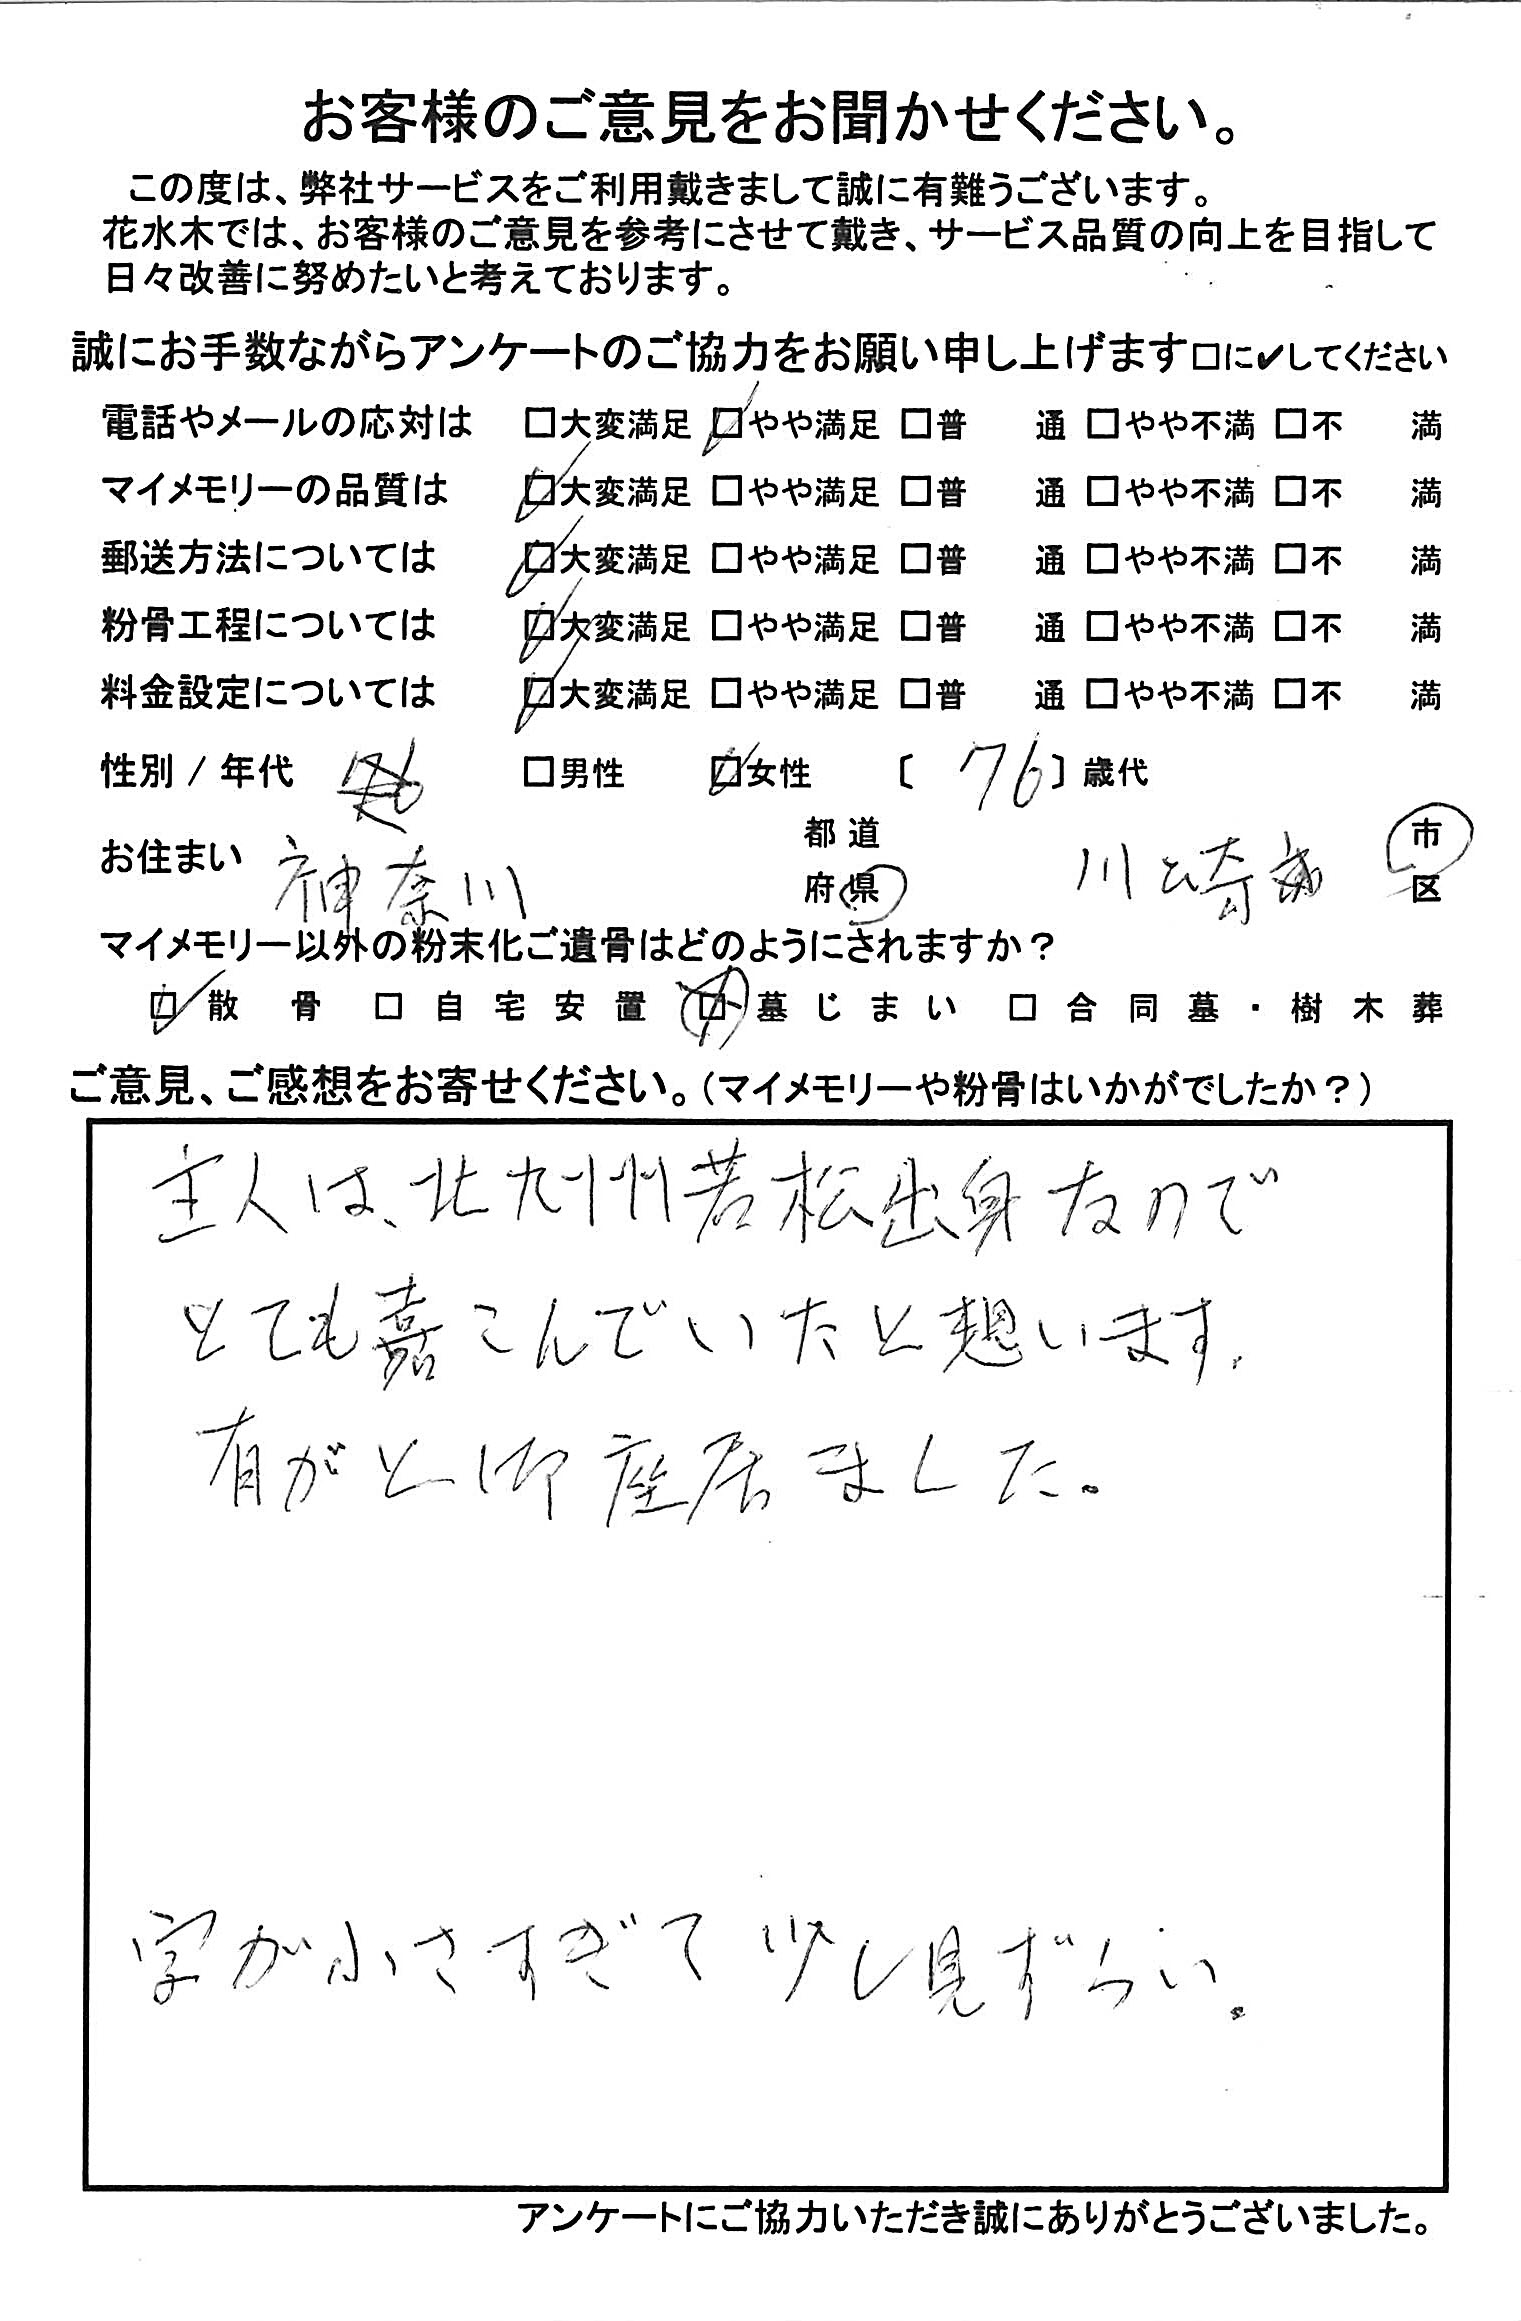 お客様のご意見をお聞かせください。
この度は、弊社サービスをご利用戴きまして誠に有難うございます。
花水木では、お客様のご意見を参考にさせて戴き、サービス品質の向上を目指して
日々改善に努めたいと考えております。
誠にお手数ながらアンケートのご協力をお願い申し上げます□に✔してください
電話やメールの応対は □大変満足 ☑やや満足 □普 通 □やや不満 □不 満
マイメモリーの品質は ☑大変満足 □やや満足 □普 通 □やや不満 □不 満
郵送方法については ☑大変満足 □やや満足 □普 通 □やや不満 □不 満
粉骨工程については ☑大変満足 □やや満足 □普 通 □やや不満 □不 満
料金設定については ☑大変満足 □やや満足 □普 通 □やや不満 □不 満
性別 / 年代 76 □男性 ☑女性 〔 76 〕歳代
お住まい 神奈川 都道府県 川崎 市区
マイメモリー以外の粉末化ご遺骨はどのようにされますか？
☑散骨 □自宅安置 □墓じまい □合同墓・樹木葬
ご意見、ご感想をお寄せください。（マイメモリーや粉骨はいかがでしたか？）
主人は、北九州若松出身なので
とても嘉こんでいたと想います。
有がと御座居ました。
字が小さすぎて少し見ずらい。
アンケートにご協力いただき誠にありがとうございました。